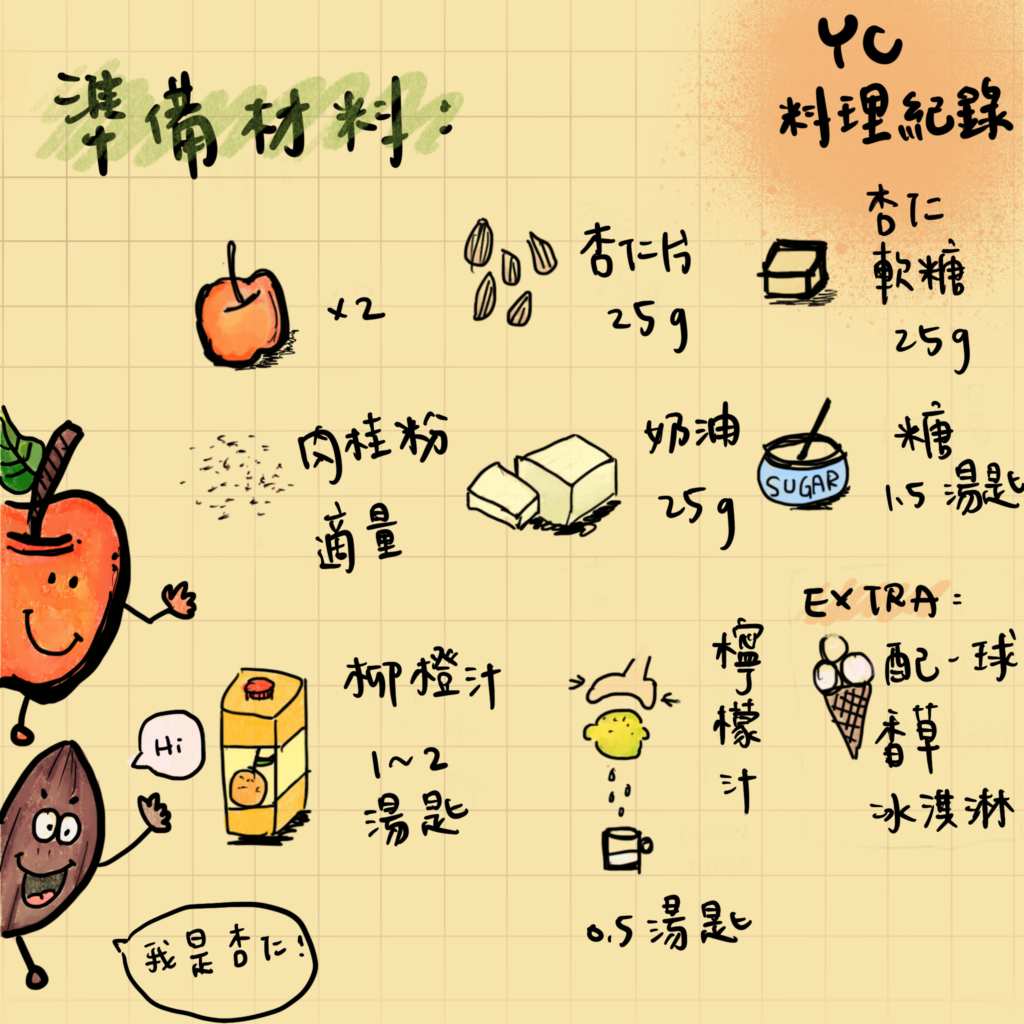 YC
料理紀錄
準備材料:
x2
杏仁片
25g
杏仁
軟糖
25g
肉桂粉
適量
奶油
25g
SUGAR
糖
1.5 湯匙
柳橙汁
1~2
湯匙
檸
檬
汁
0.5 湯匙
EXTRA:
配一球
香草
冰淇淋
Hi
我是杏仁!